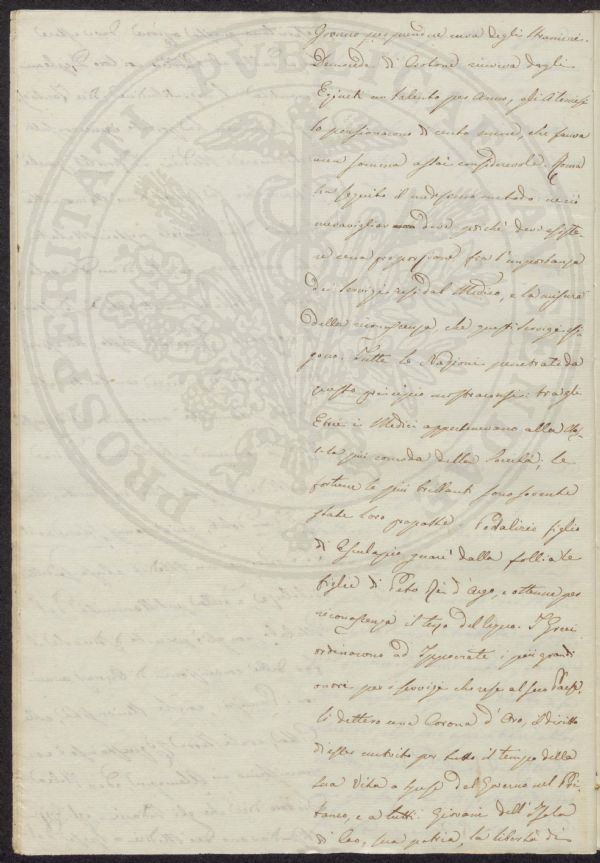 Governo per prendere cura degli stranieri.
Democede di Crotone riceveva dagli
Egineti un talento per Anno, e gli Ateniesi
lo pensionarono di cento mine, che faceva
una somma assai considerevole. Roma
ha seguito il medesimo metodo: ne ciò
meravigliar deve, poiché dev'esiste-
re certa proporzione fra l'importanza
dei servigi resi dal Medico, e la misura
della riconoscenza che questi servigi esi-
gono. Tutte le Nazioni penetrate da
questo principio mostraronsi: tra gli
Ebrei i Medici appartenevano alla clas-
se la più comoda della Società; le
fortune le più brillanti sono sovente
state loro. Podalirio figlio
di Esculapio guarì dalla follia le
figlie di Preto Rè d'Argo, e ottenne per
riconoscenza il terzo del Regno. I Greci
ordinarono ad Ippocrate i più grandi
onori per i servigi che rese al suo Paese,
li dettero una Corona d'Oro, il diritto
di esser nutrito per tutto il tempo della
sua Vita a spese del Governo nel Pri-
taneo, e a tutti i Giovani dell'Isola
di Coo, sua patria, la libertà di
PROSPERITATI PUBLICAE